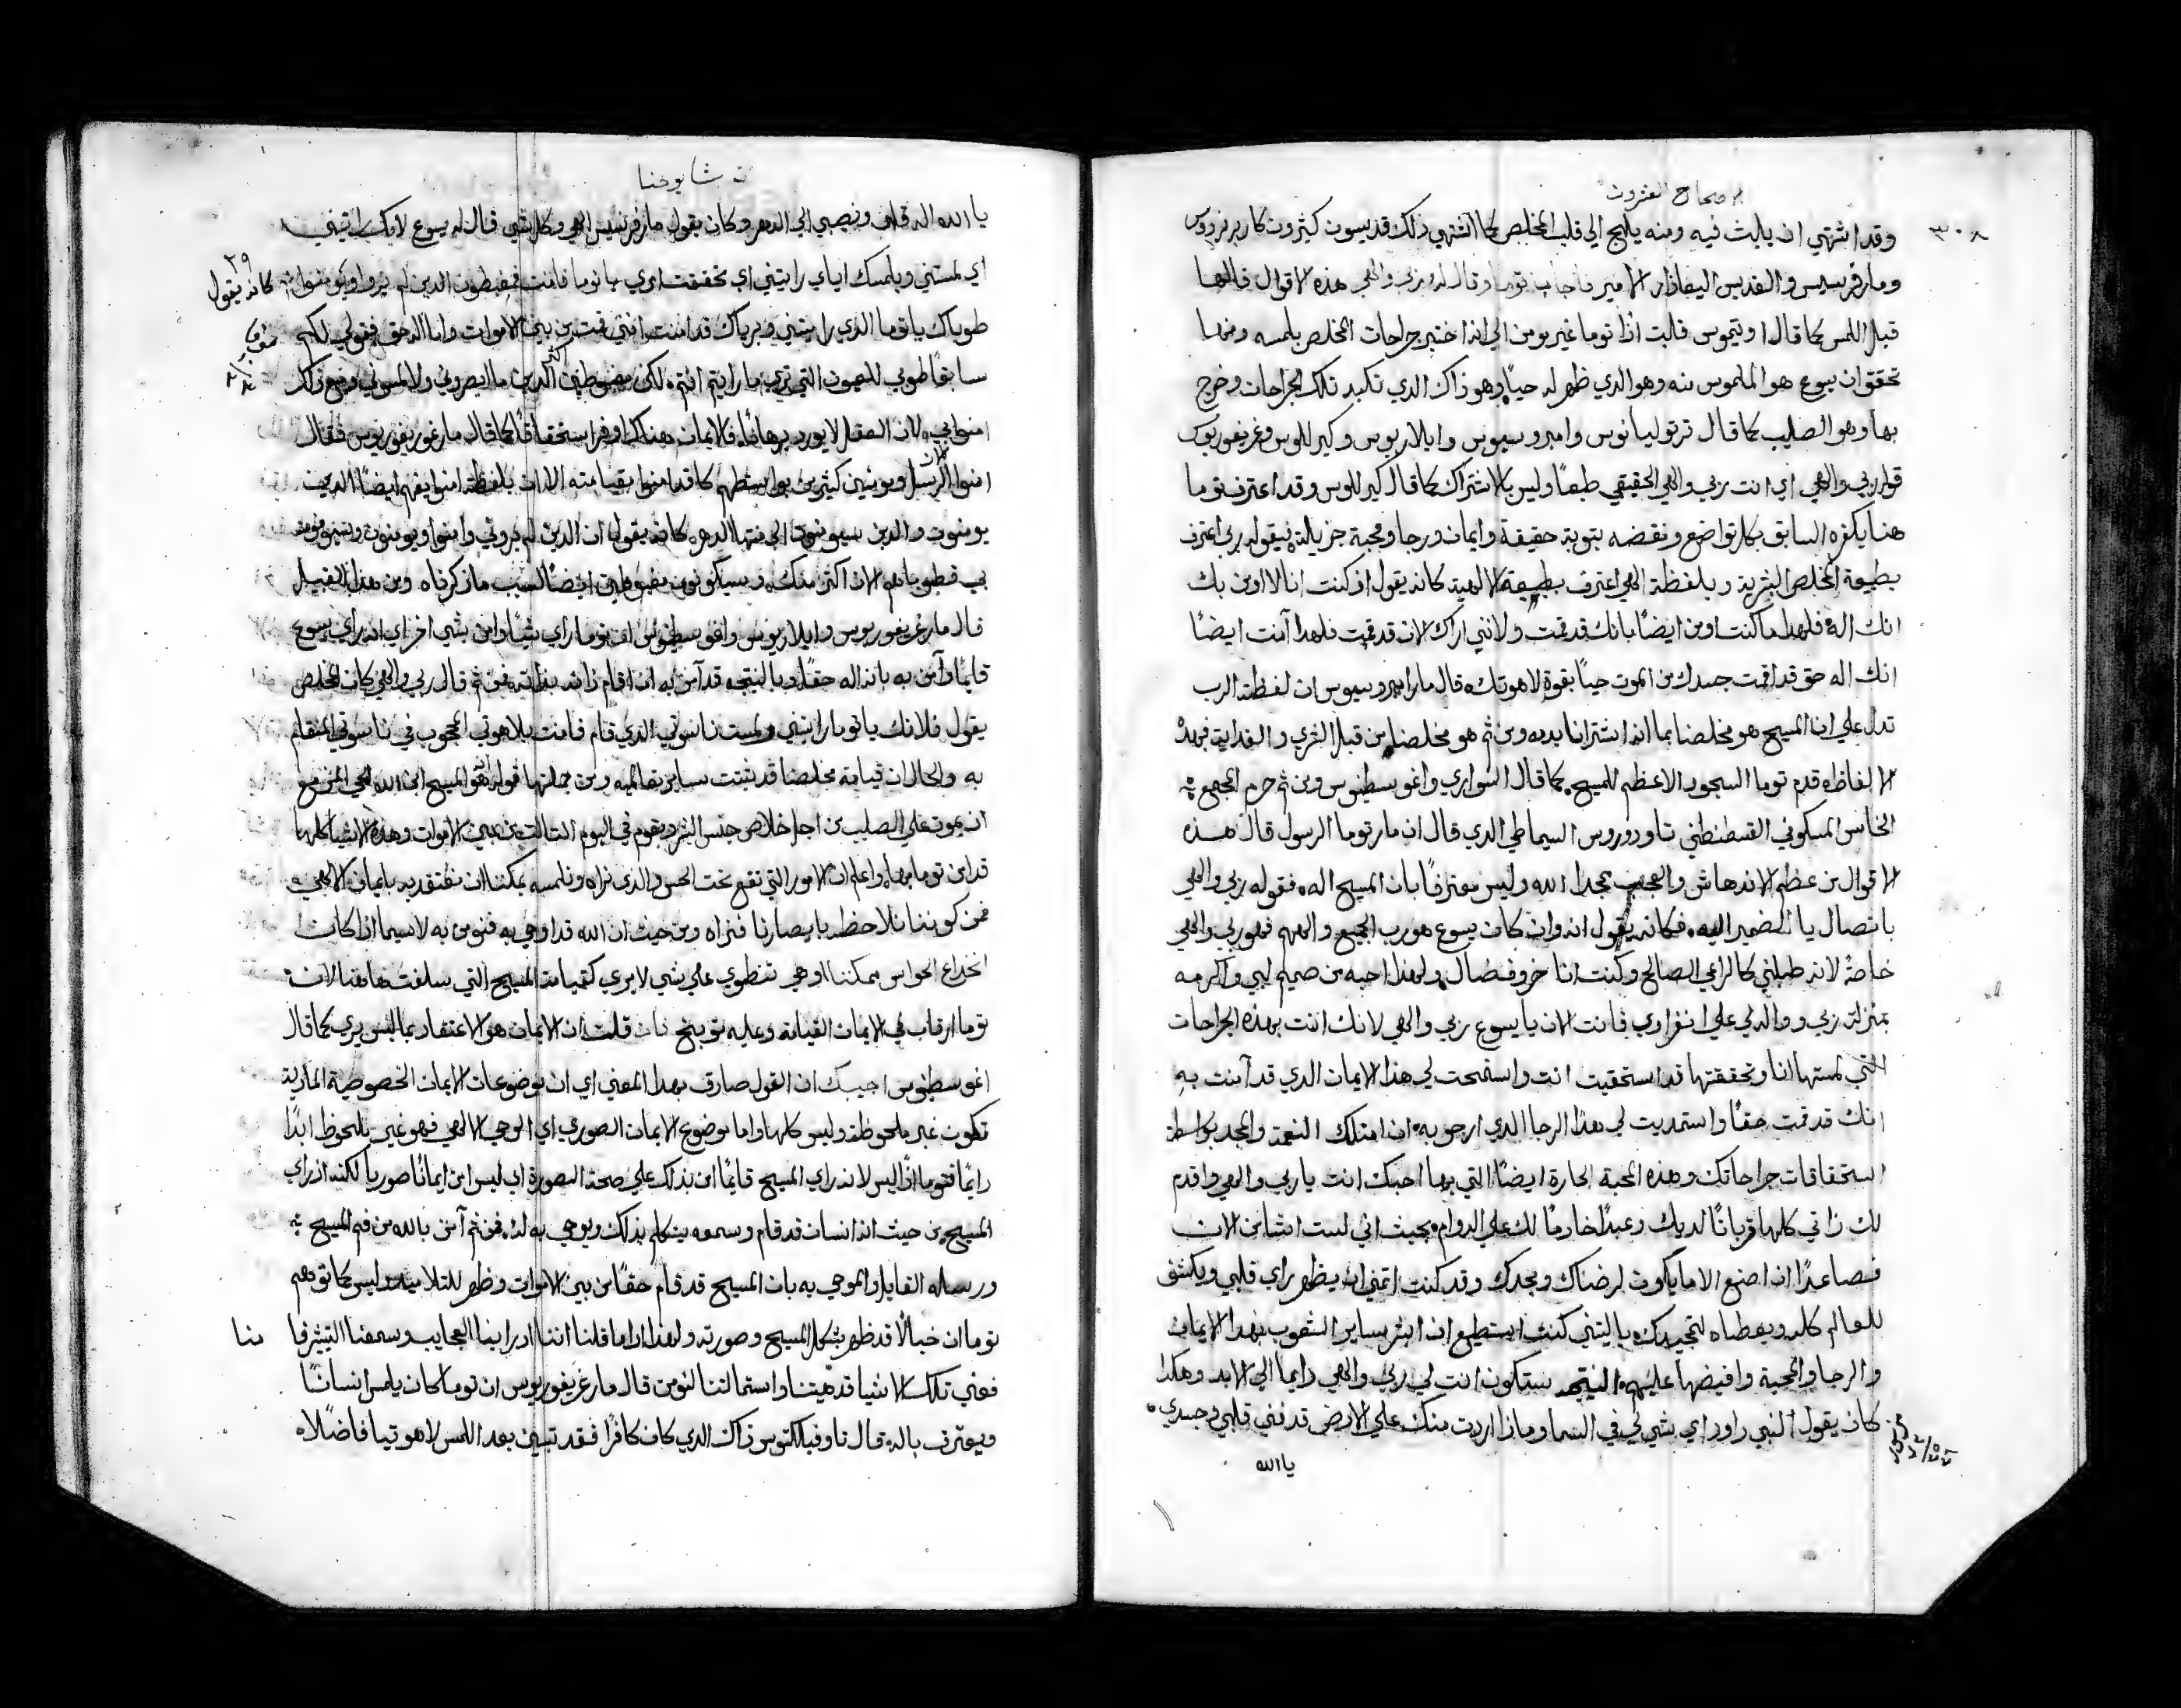 اصحاح العشرون
٣٠٨
وقد اشتهي ان يلبث فيه ومنه يلهج الي قلب المخلص كما اشتهي ذلك قديسون كثيرون كاربرنردوس
ومارفرنسيس والقديس اليعازار الامير فاجاب توما وقال له ربي والهي هذه الاقوال قالها
قبل اللمس كما قال اوتيموس قلت اذا توما غير يومن الي انه اختبر جراحات المخلص بلمسه ومنها
تحقق ان يسوع هو الملموس منه وهو الذي ظهر له حيا وهو ذاك الدي تكبد تلك الجراحات وجرح
بها وهو الصليب كما قال ترتوليانوس وامبروسيوس وايلاريوس وكيرللوس وغريغوريوس
قوله ربي والهي اي انت ربي والهي الحقيقي طبعا وليس بالاشتراك كما قال كيرللوس وقد اعترف توما
هنا بكفره السابق بكل تواضع ونقضه بتوبة حقيقية وايمان ورجا ومحبة جزيلة فبقوله ربي اعترف
بطبيعة المخلص البشرية وبلفظة الهي اعترف بطبيعته الالهية كانه يقول اذ كنت انا لا اومن بك
انك اله فلهدا ما كنت اومن ايضا بانك قد قمت ولانني اراك الان قد قمت فلهدا آمنت ايضا
انك اله حق قد اقمت جسدك من الموت حيا بقوة لاهوتك قال مار امبروسيوس ان لفظة الرب
تدل علي ان المسيح هو مخلصنا بما انه اشترانا بدمه ومن ثم هو مخلصنا من قبل الشري والفدا فبهذه
الالفاظ قدم توما السجود الاعظم للمسيح كما قال السواري واغوسطينوس ومن ثم حرم المجمع
الخامس المسكوني القسطنطني تاودوروس السيماطي الدي قال ان مار توما الرسول قال هذه
الاقوال من عظم الاندهاش والعجب ممجدا الله وليس معترفا بان المسيح اله فقوله ربي والهي
باتصال يا الضمير اليه فكانه يقول انه وان كان يسوع هو رب الجميع والههم فهو ربي والهي
خاصة لانه طلبني كالراعي الصالح وكنت انا خروف ضال ولهذا احبه من صميم لبي واكرمه
بمنزلة ربي ووالدي علي انفرادي فانت الان يا يسوع ربي والهي لانك انت بهذه الجراحات
التي لمستها انا وتحققتها قد استحقيت انت واستمحت لي هذا الايمان الدي قد آمنت به
انك قد قمت حقا واستمديت لي هذا الرجا الدي ارجو به ان امتلك النعمة والمجد بواسطة
استحقاقات جراحاتك وهذه المحبة الحارة ايضا التي بها احبك انت يا ربي والهي واقدم
لك ذاتي كلها قربانا لديك وعبدا خادما لك علي الدوام بحيث اني لست اشا من الان
فصاعدا ان اصنع الا ما يكون لرضاك ومجدك وقد كنت اتمني ان يظهر راي قلبي ويكشف
للعالم كله ويعطاه لتمجيدك يا ليتني كنت استطيع ان ابشر ساير الشعوب بهذا الايمان
والرجا والمحبة وافيضها عليهم النتيجه ستكون انت لي ربي والهي دايما الي الابد وهكذا
كان يقول النبي داود اي شي لي في السما وماذا اردت منك علي الارض قد فني قلبي وجسدي
يا الله
يا اله قلبي ونصيبي الي الدهر وكان يقول مارفرنسيس الهي وكل شي قال له يسوع لانك رايتني
اي لمستني وبلمسك اياي رايتني اي تحققت امري يا توما فامنت فمغبطون الدين لم يروا ويومنون كانه يقول
٢٩
طوباك يا توما الدي رايتني وبرياك قد امنت انني قمت من بين الاموات وانا اله حق فقولي لكم
سابقا طوبي للعيون التي تري ما رايتم انتم لكن مغبوطين اكثر الدين ما ابصروني ولا لمسوني ومع ذلك
امنوا بي لان العقل لا يورد برهانا فالايمان هناك اوفر استحقاقا كما قال مار غوريغوريوس فقال
امنوا الرسل ومومنين كثيرين بواسطتهم كما قد امنوا بقيامته الان بلفظة امنوا يفهم ايضا الدين
يومنون والدين سيومنون الي منتها الدهر كانه يقول ان الدين لم يروني وامنوا ويومنون وسيومنون
بي فطوباهم الان اكثر منك وسيكونون مغبوطين ايضا لسبب ما ذكرناه ومن هذا القبيل
قال مار غريغوريوس وايلاريوس واغوسطينوس ان توما راي شيا وامن بشي اخر اي انه راي يسوع
قايما وآمن به بانه اله حقا وبالنتيجه قد آمن به انه اقام ذاته بذاته فمن ثم قال ربي والهي كان المخلص
يقول فلانك يا توما رايتني ولمست ناسوتي الدي قام فامنت بلاهوتي المحجوب في ناسوتي المتقام
به والحال ان قيامة مخلصنا قد ثبتت ساير تعاليمه ومن جملتها قوله انه هو المسيح ابن الله الحي المزمع
ان يموت علي الصليب من اجل خلاص جنس البشر ويقوم في اليوم الثالث من بين الاموات وهذه الاشيا كلها
قد امن توما بها واعلم ان الامور التي تقع تحت الحس والدي نراه ونلمسه يمكننا ان نعتقد به بايمان الاهي
فمن كوننا نلاحظه بابصارنا فنراه ومن حيث ان الله قد اوحي به فنومن به لاسيما اذا كانت
انخداع الحواس ممكنا اوهي تنطوي علي شي لا يري كقيامة المسيح التي سلفت هاهنا لان
توما ارتاب في الايمان القيامة وعليه توبيخ فان قلت ان الايمان هو الاعتقاد بما ليس يري كما قال
اغوسطينوس اجيبك ان القول صادق بهدا المعني اي ان موضوعات الايمان الخصوصية المادية
تكون غير ملحوظة وليس كلها واما موضوع الايمان الصوري اي الوحي الالهي فهو غير ملحوظ ابدا
دايما فتوما اذا ليس لانه راي المسيح قايما امن بذلك علي صحة الصورة اي ليس امن ايمانا صوريا لكنه اذ راي
المسيح من حيث انه انسان قد قام وسمعه يتكلم بذلك ويوحي به له فمن ثم آمن بالله من فم المسيح
ورسله القايل والموحي به بان المسيح قد قام حقا من بين الاموات وظهر للتلاميد وليس كما توهم
توما ان خيالا قد ظهر بشكل المسيح وصورته ولهذا اذا ما قلنا اننا اذ راينا العجايب وسمعنا التبشير فا
منا
فهي تلك الاشيا قد هيتنا واستمالتنا لنومن قال مار غريغوريوس ان توما كان يلمس انسانا
ويعترف باله قال تاوفيلكتوس ذاك الدي كان كافرا فقد تبين بعد اللمس لاهوتيا فاضلا